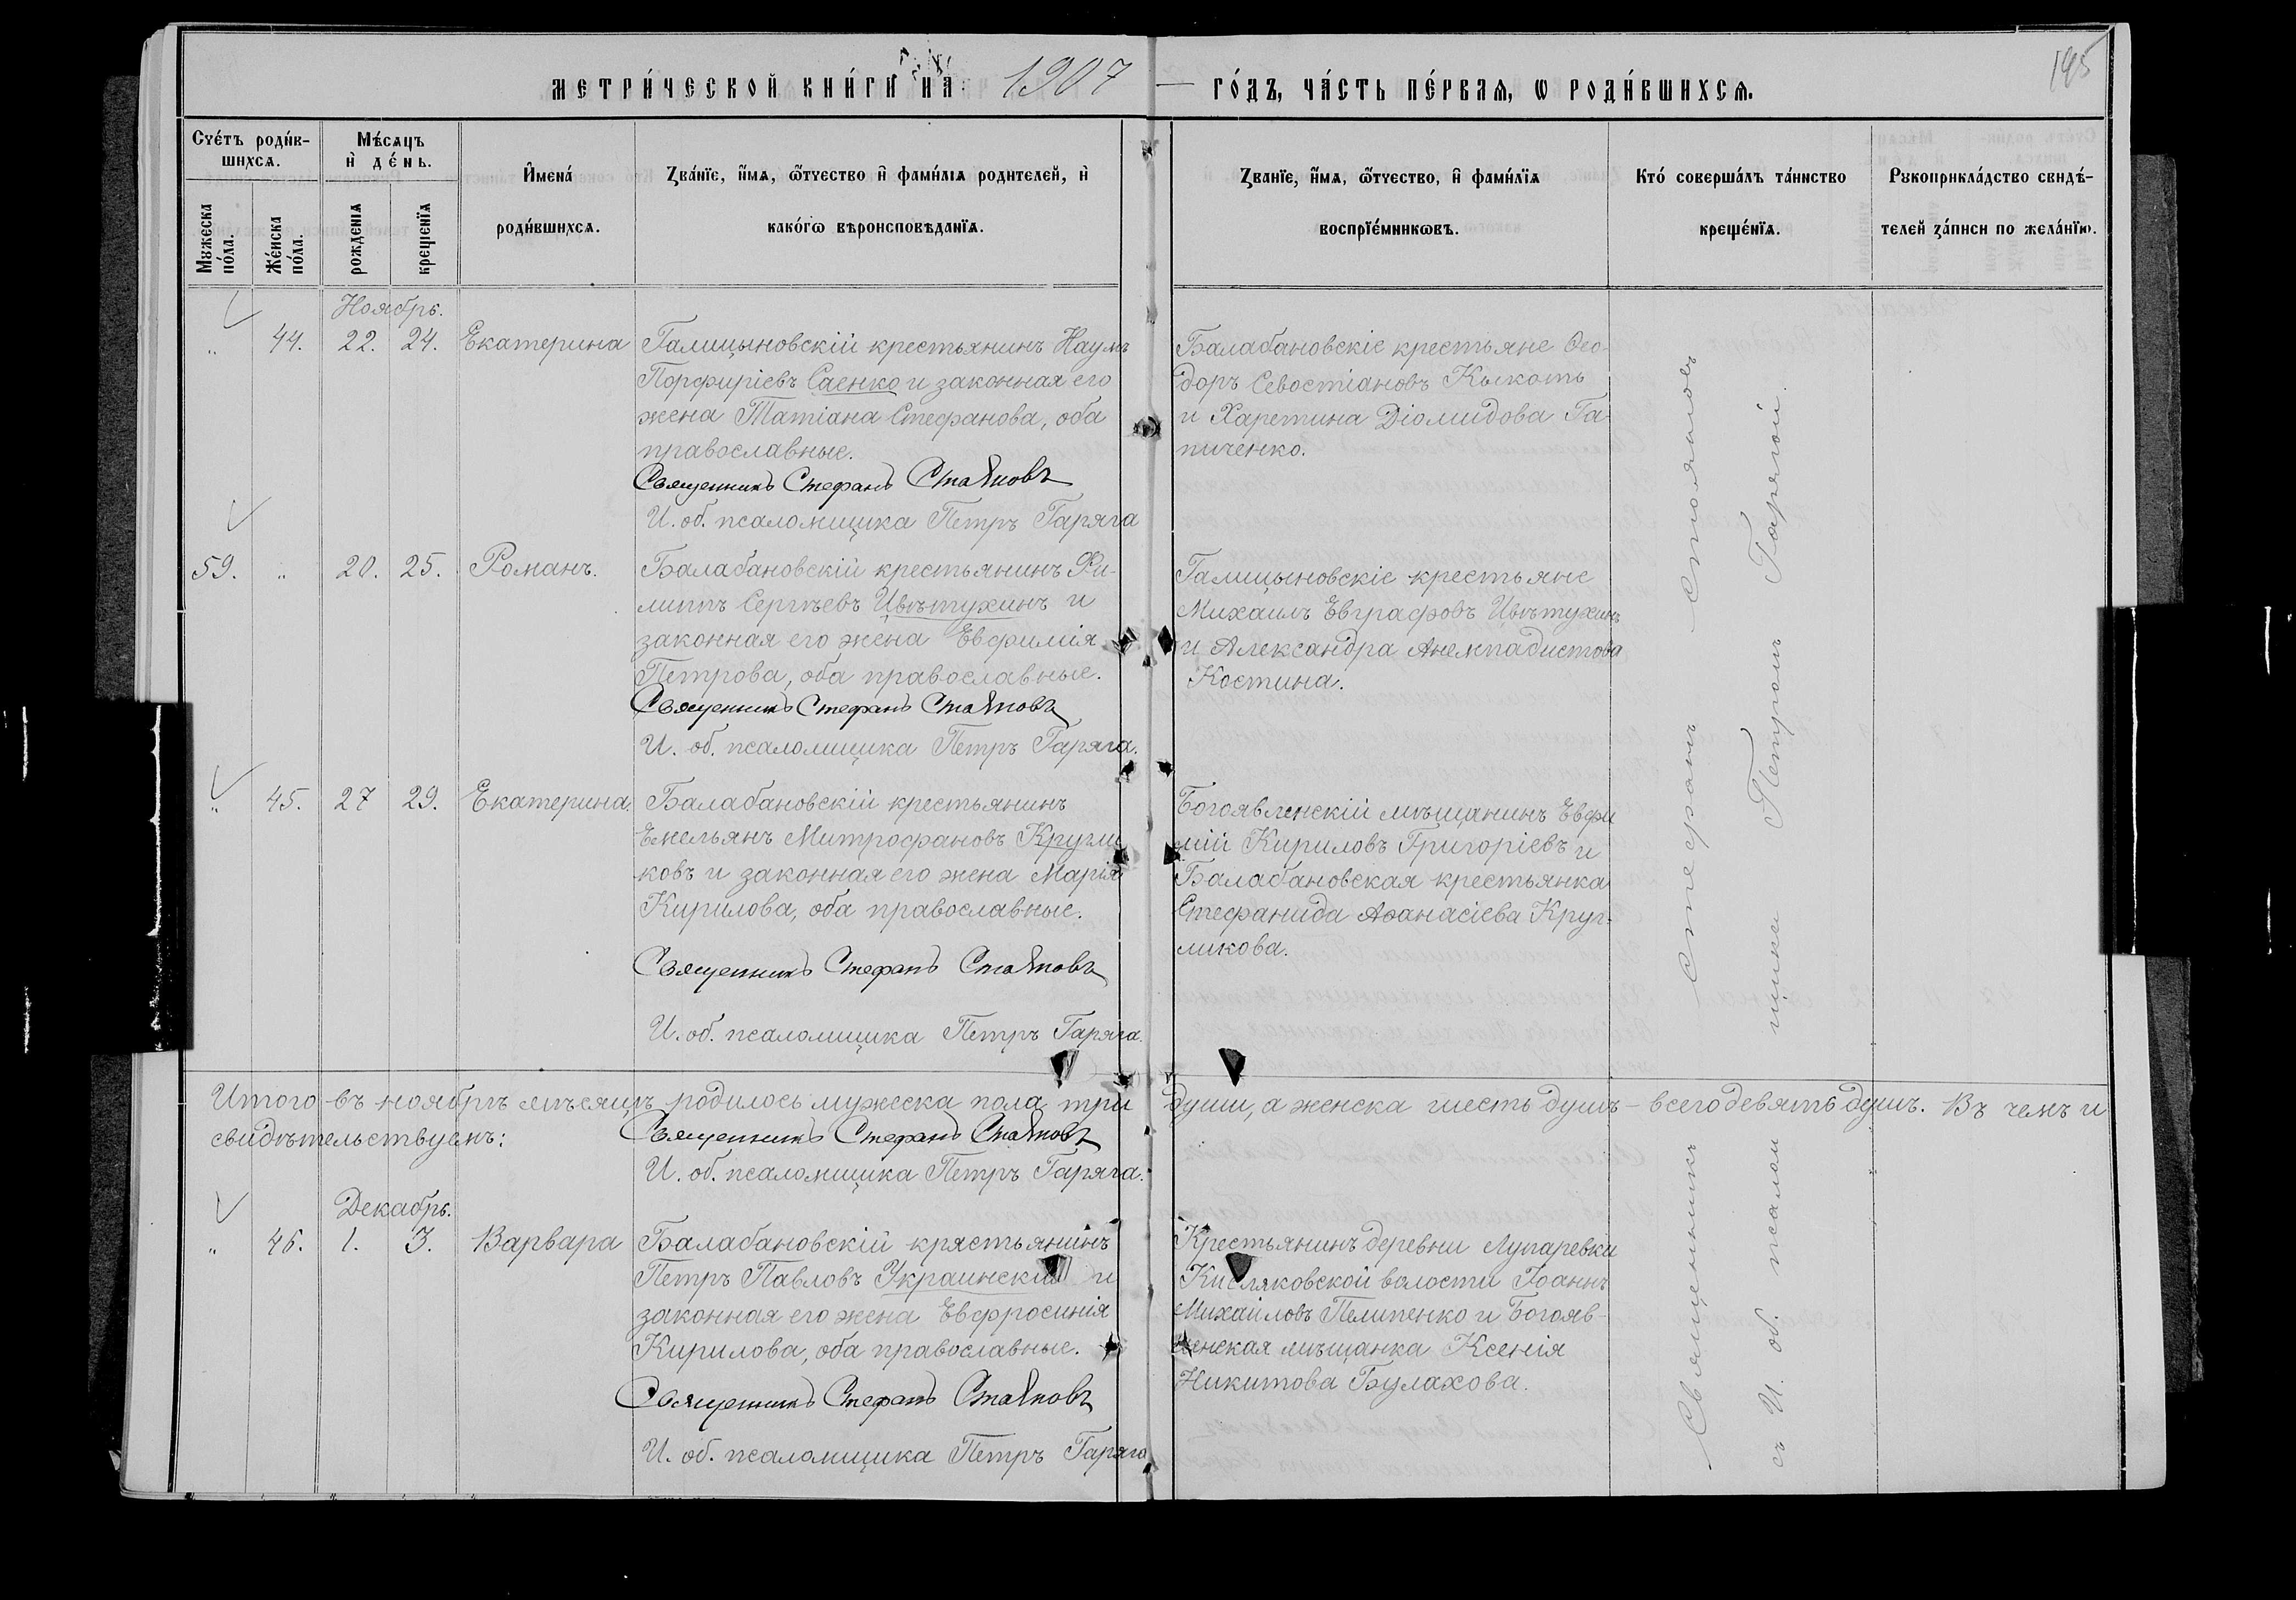 МЕТРИ́ЧЕСКОЙ КНИ́ГИ НА 1907 ГО́ДЪ, ЧА́СТЬ ПЕ́РВАѦ, Ѡ РОДИ́ВШИХСѦ.
195
Счётъ роди́вшихсѧ.
Мужеска по́ла.
Же́нска по́ла.
Мѣ́сѧцъ и҆ де́нь.
рожденїѧ
крещенїѧ
И҆мена́ роди́вшихсѧ.
Зва́нїе, и҆́мѧ, ѻ҆́тчество и҆ фами́лїѧ родителей, и҆ како́гѡ вѣроисповѣданїѧ.
Званїе, и҆́мѧ, ѻ҆́тчество, и҆ фами́лїѧ воспрїе́мникѡвъ.
Кто́ соверша́лъ та́инство креще́нїѧ.
Рукоприкла́дство свидѣ́телей за́писи по жела́нїю.
Ноябрь.
„ 44. 22. 24. Екатерина
Галицыновскій крестьянинъ Наумъ
Порфиріевъ Саенко и законная его
жена Татіана Стефанова, оба
православные.
Священникъ Стефанъ Стояновъ
И. об. псаломщика Петръ Гаряга
Балабановскіе крестьяне Ѳео-
доръ Севостіановъ Кыкоть
и Харетина Діомидова Га-
пиченко.
59. „ 20. 25. Романъ.
Балабановскій крестьянинъ Фи-
липпъ Сергѣевъ Цвѣтухинъ и
законная его жена Евфимія
Петрова, оба православные.
Священникъ Стефанъ Стояновъ
И. об. псаломщика Петръ Гаряга.
Галицыновскіе крестьяне
Михаилъ Евграфовъ Цвѣтухинъ
и Александра Анемпадистова
Костина.
„ 45. 27 29. Екатерина.
Балабановскій крестьянинъ
Емельянъ Митрофановъ Кругли
ковъ и законная его жена Марія
Кирилова, оба православные.
Священникъ Стефанъ Стояновъ
И. об. псаломщика Петръ Гаряга.
Богоявленскій мѣщанинъ Евфи
мій Кириловъ Григоріевъ и
Балабановская крестьянка
Стефанида Аѳанасіева Круг-
ликова.
Итого въ ноябрѣ мѣсяцѣ родилось мужеска пола три души, а женска шесть душъ – всего девять душъ. Въ чемъ и
свидѣтельствуемъ:
Священникъ Стефанъ Стояновъ
И. об. псаломщика Петръ Гаряга.
Декабрь.
„ 46. 1. 3. Варвара
Балабановскій крястьянинъ
Петръ Павловъ Украинскій и
законная его жена Евфросинія
Кирилова, оба православные.
Священникъ Стефанъ Стояновъ
И. об. псаломщика Петръ Гаряга
Крестьянинъ деревни Лупаревки
Кисляковской волости Іоаннъ
Михайловъ Пелипенко и Богояв-
ленская мѣщанка Ксенія
Никитова Булахова.
Священникъ Стефанъ Стояновъ
съ И. об. псалом щика Петромъ Гарягой.